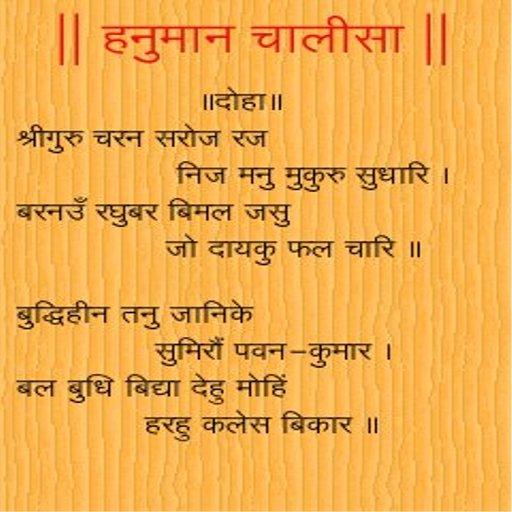 || हनुमान चालीसा ||
॥दोहा॥
श्रीगुरु चरन सरोज रज
निज मनु मुकुरु सुधारि ।
बरनउँ रघुबर बिमल जसु
जो दायकु फल चारि ॥
बुद्धिहीन तनु जानिके
सुमिरौं पवन-कुमार ।
बल बुधि बिद्या देहु मोहिं
हरहु कलेस बिकार ॥